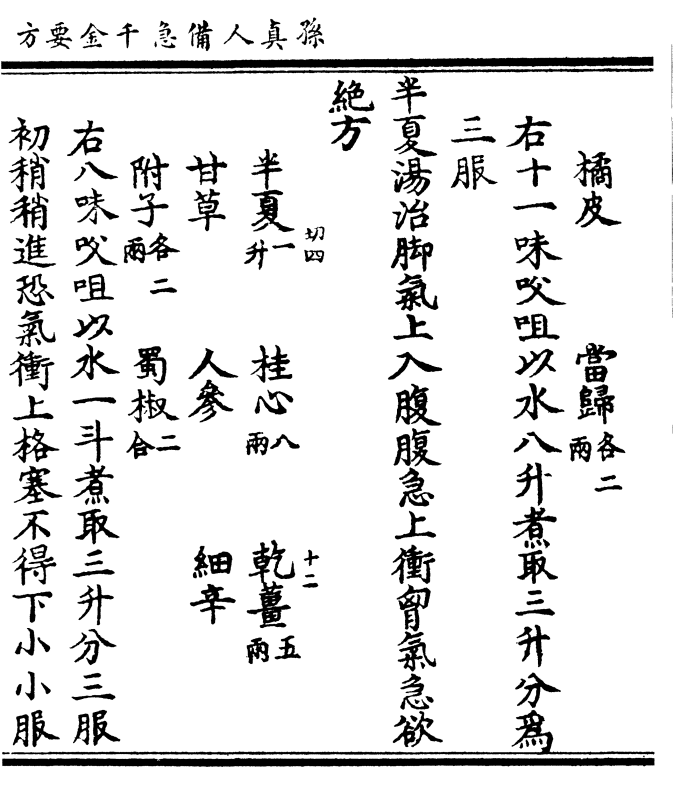 孫真人備急千金要方
橘皮 當歸各二兩
右十一味㕮咀以水八升煮取三升分爲
三服
半夏湯治脚氣上入腹腹急上衝胷氣急欲
絶方
半夏一升切四 桂心八兩 乾薑五兩十二
甘草 人參 細辛
附子各二兩 蜀椒二合
右八味㕮咀以水一斗煮取三升分三服
初稍稍進恐氣衝上格塞不得下小小服